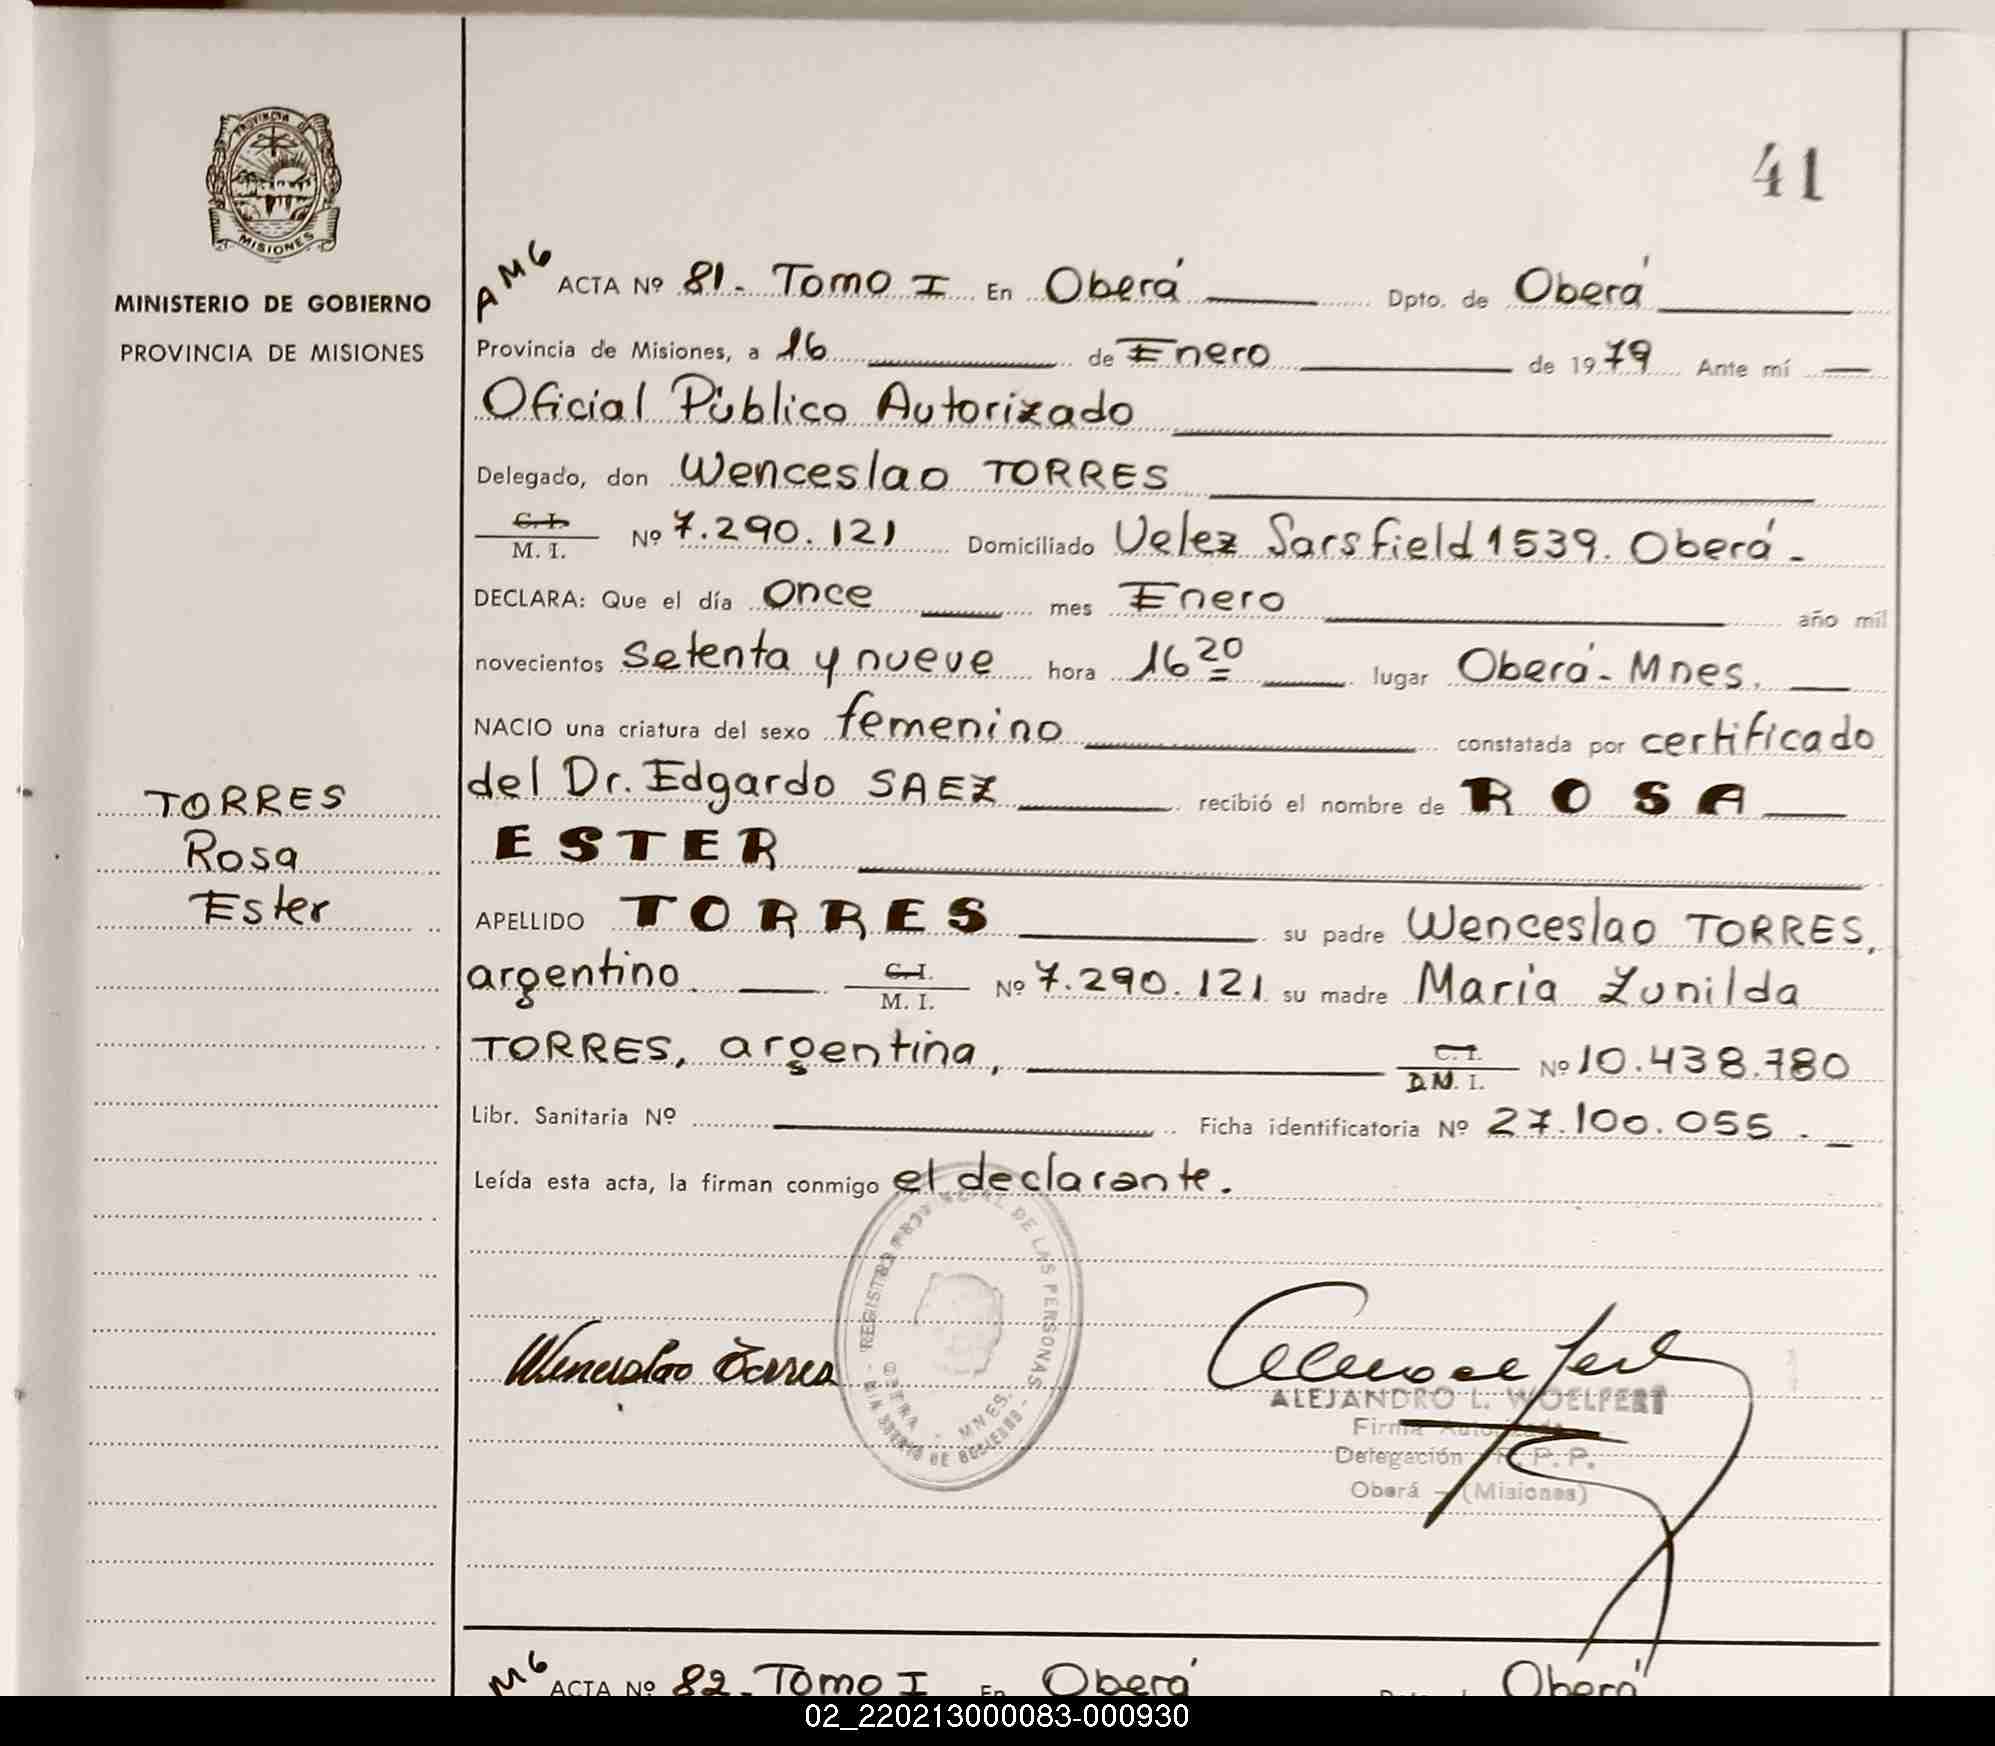 41
PROVINCIA DE
MISIONES
MINISTERIO DE GOBIERNO
PROVINCIA DE MISIONES
AMG ACTA Nº 81. Tomo I En Oberá Dpto. de Oberá
Provincia de Misiones, a 16 de Enero de 1979 Ante mí
Oficial Público Autorizado
Delegado, don Wenceslao TORRES
C. I.
M. I. Nº 7.290.121 Domiciliado Velez Sarsfield 1539. Oberá.
DECLARA: Que el día Once mes Enero año mil
novecientos setenta y nueve hora 16 20 lugar Oberá - Mnes.
NACIO una criatura del sexo femenino constatada por certificado
del Dr. Edgardo SAEZ recibió el nombre de ROSA
ESTER
TORRES
Rosa
Ester
APELLIDO TORRES su padre Wenceslao TORRES,
argentino. C. I.
M. I. Nº 7.290.121 su madre María Zunilda
TORRES, argentina, C. I.
D.N. I. Nº 10.438.780
Libr. Sanitaria Nº Ficha identificatoria Nº 27.100.055.
Leída esta acta, la firman conmigo el declarante.
REGISTRO PROVINCIAL DE LAS PERSONAS
OBERA - MNES.
MINISTERIO DE GOBIERNO
Wenceslao Torres
ALEJANDRO L. WOELFERT
Firma Autorizada
Delegación R. P. P.
Oberá - (Misiones)
MG ACTA Nº 82. Tomo I En Oberá Dpto. de Oberá
02_220213000083-000930